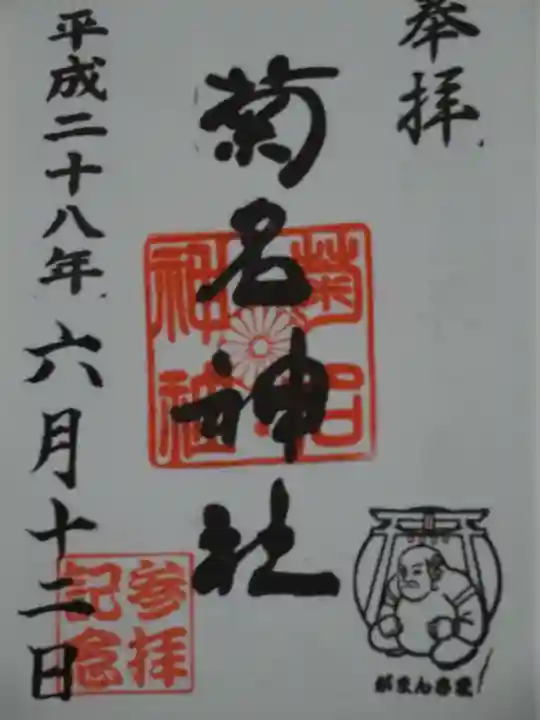 奉拝
菊名神社
菊名神社
平成二十八年六月十二日
参拝記念
がまんさま